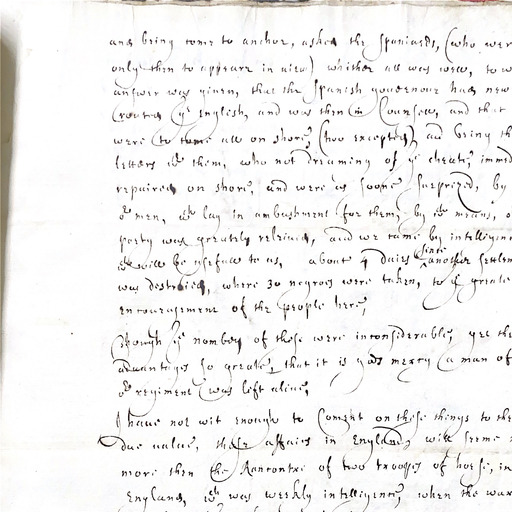 and being come to anchor, asked the spaniards, (who wer
only then to appeare in view) whether all was well, to w
answer was given, that the Spanish governour had new
routed ye English, and was then in Counsell, and that
were to come all on shore, (two excepted) and bring th
letters wth them, who not dreaming of ye cheate, immed
repaired on shore, and were as soone surprized, by
or men, wch lay in ambushment for them, by wch means, o
party was greately releived, and we came by intelligenc
wch will be usefull to us, about 4 daies since another settlem
was destroied, where 30 negroes were taken, to ye greate
encouragement of the people here,
though ye nomber of these were inconsiderable, yet the
advantages so greate, that it is gods mercy a man of
or regiment was left alive,
I have not wit enough to Comment on these things to the
due value, these affaires in England, will seeme
more then the Rancontre of two troopes of horse, in
England, wch was weekly intelligence, when the war